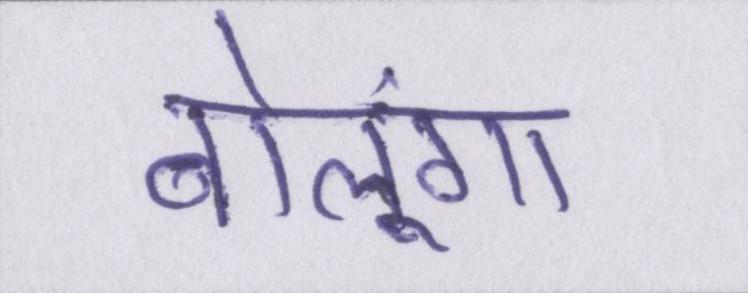 बोलूंगा